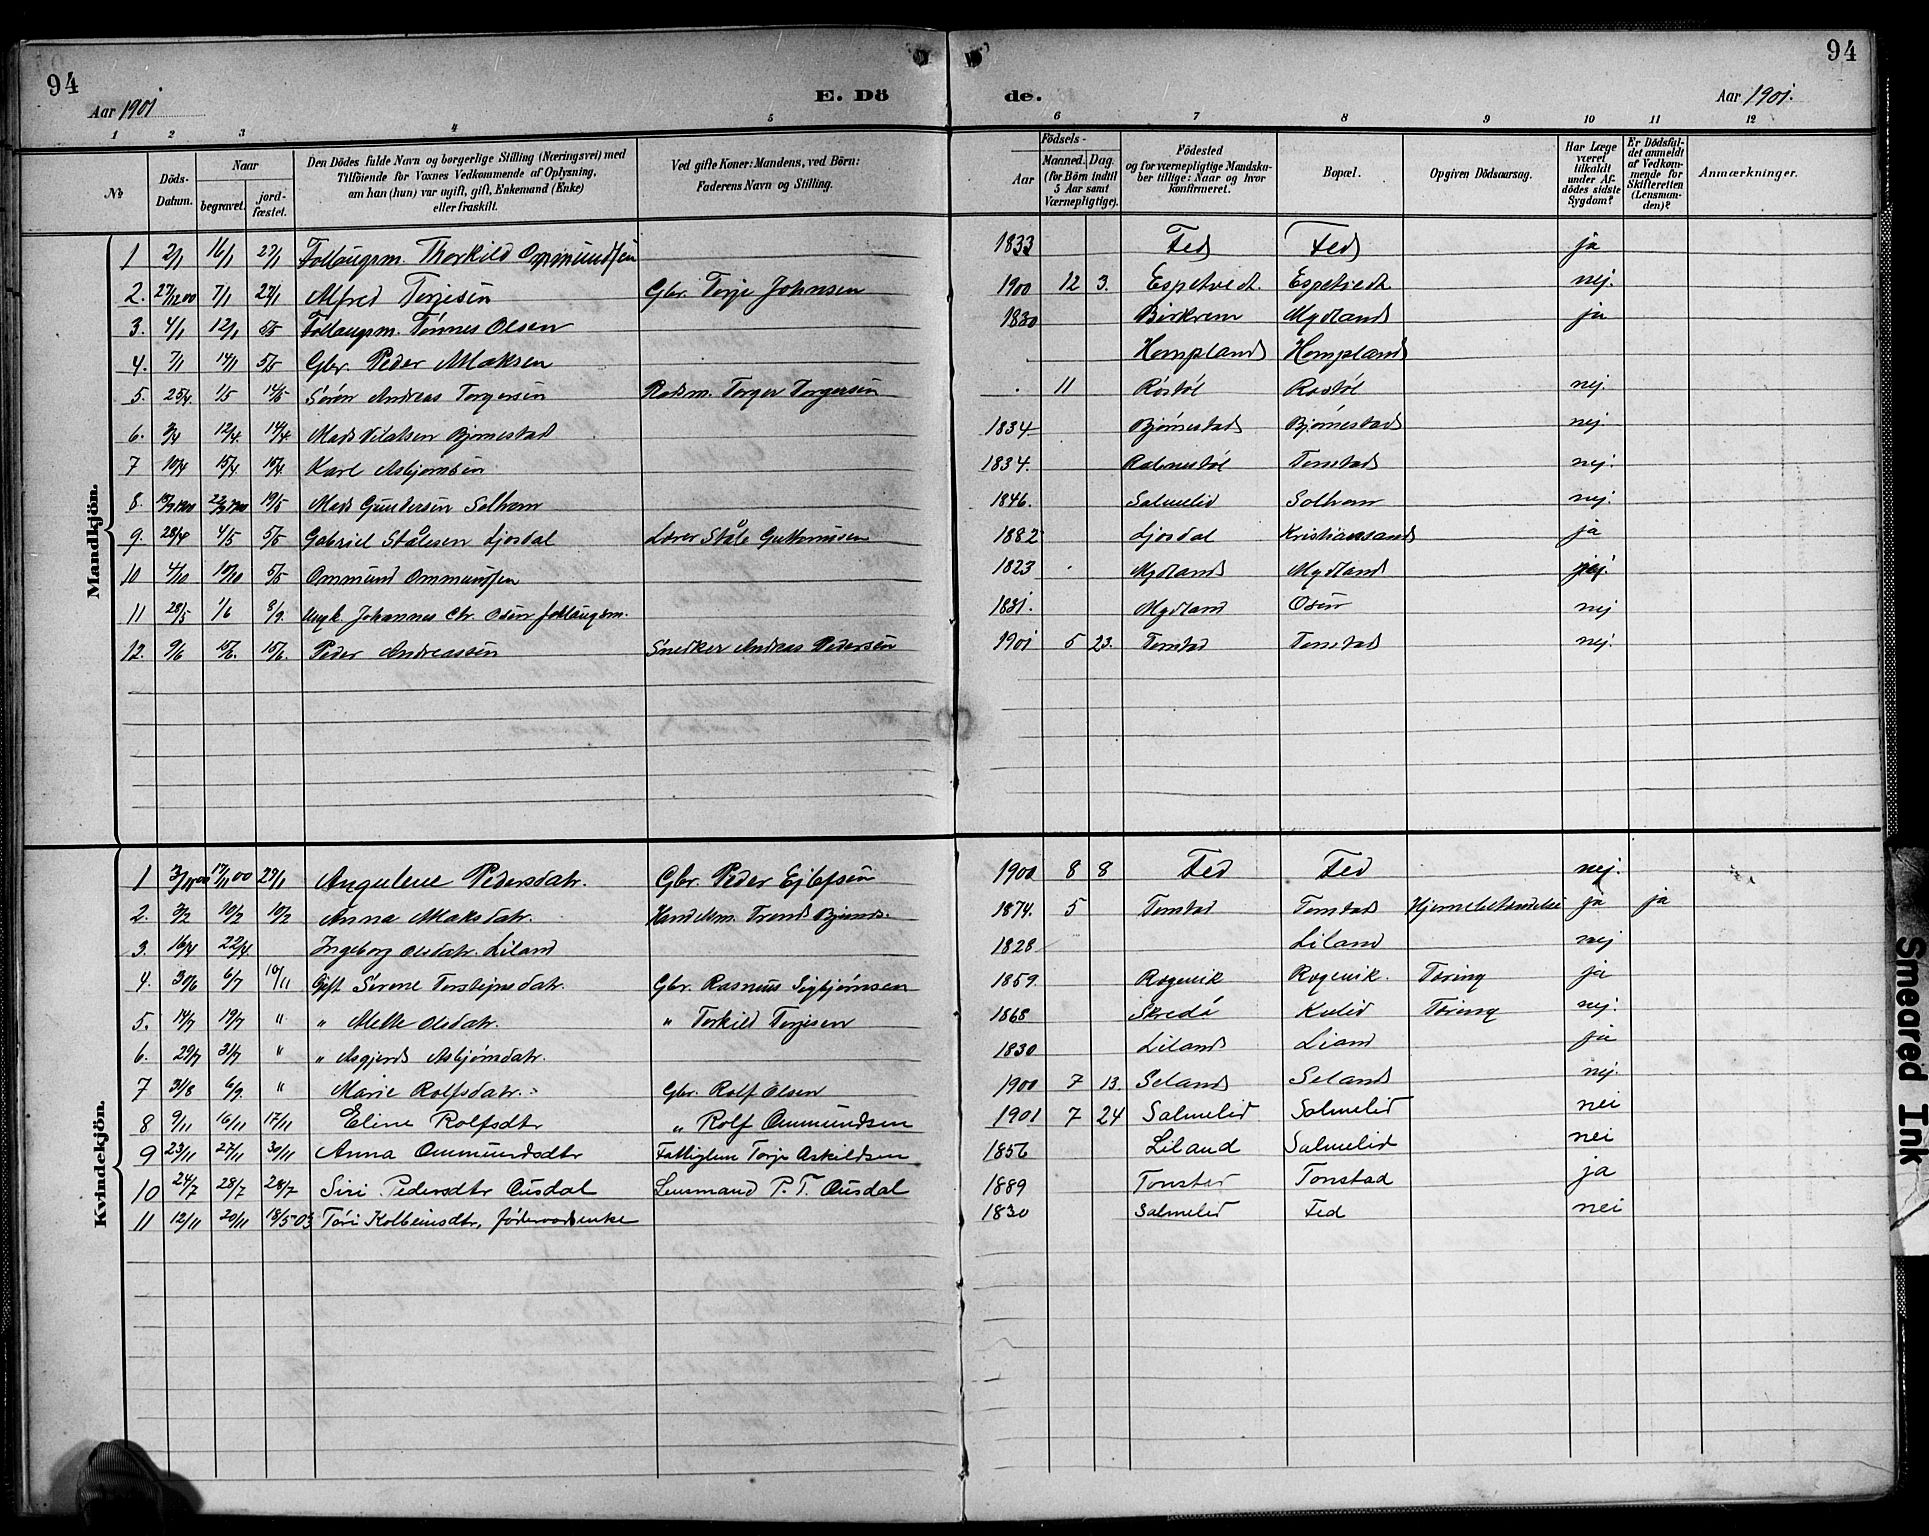 94
94
Aar 1901
E. Dö
de.
Aar 1901.
1 2 3 4 5 6 7 8 9 10 11 12
No
Döds-Datum.
Naar
begravet.
jordfæstet.
Den Dödes fulde Navn og borgerlige Stilling (Næringsvei) med
Tilföiende for Voxnes Vedkommende af Oplysning,
om han (hun) var ugift, gift, Enkemand (Enke)
eller fraskilt.
Ved gifte Koner: Mandens, ved Börn:
Faderens Navn og Stilling.
Födsels-
Aar
Maaned. Dag.
(for Börn indtil
5 Aar samt
Værnepligtige).
Födested
og for værnepligtige Mandskaber tillige: Naar og hvor
konfirmeret.
Bopæl.
Opgiven Dödsaarsag.
Har Læge været tilkaldt under Afdödes sidste Sygdom?
Er Dödsfaldet anmeldt af Vedkommende for Skifteretten (Lensmanden)?
Anmærkninger.
Mandkjön.
1 2/1 16/1 27/1 Follaugsm. Thorkild Ommundsen 1833 Fed Fed ja
2. 27/12 00 7/1 27/1 Alfred Torjesen Gbr. Torje Johnsen 1900 12 3. Espetvedt. Espetvedt nej.
3. 4/1 12/1 5/5 Follaugsm. Tønnes Olsen 1830 Birkrem Mydland ja
4. 7/1 14/1 5/5 Gbr. Peder Maksen Hompland Hompland
5. 25/4. 1/5 14/5 Søren Andreas Torgersen Torger Torgersen 11 Røstøl Røstøl nej
6. 3/4 12/4. 14/4 Mads Bjørnestad 1834 Bjørnestad Bjørnestad nej
7 10/4 15/4. 15/4. Karl Asbjørnsen 1834. Tonstad nej.
8. 19/5 Mads Gundersen Solhom 1846. Salmelid Solhom nej.
9. 28/4 4/5 5/5 Gabriel Stålesen Ljosdal Lærer Ståle Guttormsen 1882 Ljosdal Kristianssand ja
10 4/10 10/10 5/5 Ommund Ommundsen 1823 Mydland Mydland nej.
11 28/5 1/6 8/9. Ungk. Johannes Chr. Osen follaugsm. 1831. Mydland Osen nej
12. 9/6 15/6. 15/6. Peder Andreassen Snedker Andreas Pedersen 1901 5 23. Tonstad Tonstad nej.
Kvindekjön.
1 27/1 Anguline Pedersdatr. Gbr. Peder Ejlefsen 1900 8 8 Fed Fed nej.
2. 3/2 10/2 10/2 Anna Maksdatr. Handelsm. Trond 1874. 5 Tonstad Tonstad Hjernebetændelse ja ja
3. 16/4 22/4. Ingeborg Olsdatr. Liland 1828 Liland nej
4. 30/6 6/7 10/11 Gift Sørene Torstejnsdatr. Gbr. Rasmus Sigbjørnsen 1859. Røgevik Røgevik. Tæring ja
5. 14/7 19/7 " " Mette Olsdatr. " Torkild Torjesen 1868 Kvelid Tæring nej.
6. 29/7 31/7 " " Asgjerd Asbjørnsdatr. 1830 Liland Liand ja
7 31/8 6/9. " Marie Rolfsdatr. Gbr. Rolf Olsen 1900 7 13. Seland Seland nej.
8 9/11 16/11 17/11 Eline Rolfsdtr " Rolf Ommundsen 1901 7 24 Salmelid Salmelid nei
9 23/11 27/11 30/11 Anna Ommundsdtr Fattiglem Torje Askildsen 1856 Liland Salmelid nei
10 24/7 28/7 28/7 Siri Pedersdtr Ousdal Lensmand P. T. Ousdal 1889 Tonstad Tonstad ja
11 12/11 20/11 18/5 03 Tori Kolbeinsdtr, føderaadsenke 1830 Salmelid Fed nei
Smeared Ink